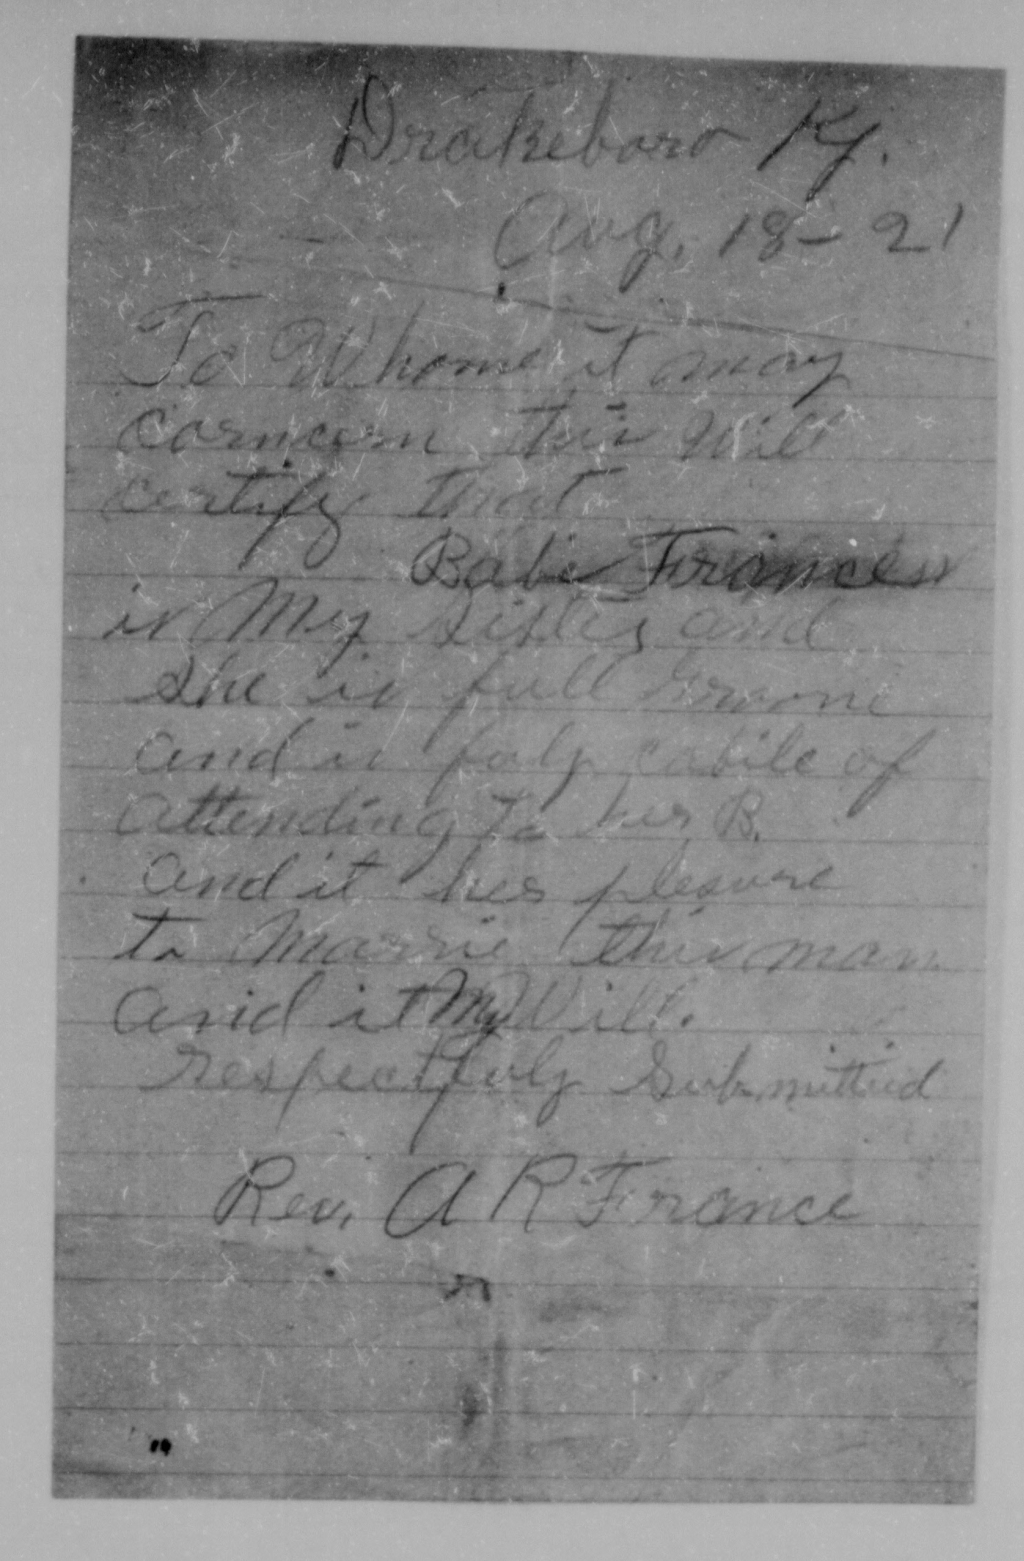 Drakeboro Ky.
Aug. 18-21
To Whome it may
corncern this Will
certify that
Babe Frances
is My Sister and
She is full Growne
and is fuly cabile of
attending to her B.
and it hes plesure
to Marrie this man
and it My Will.
respectfuly Submittid
Rev. A R France